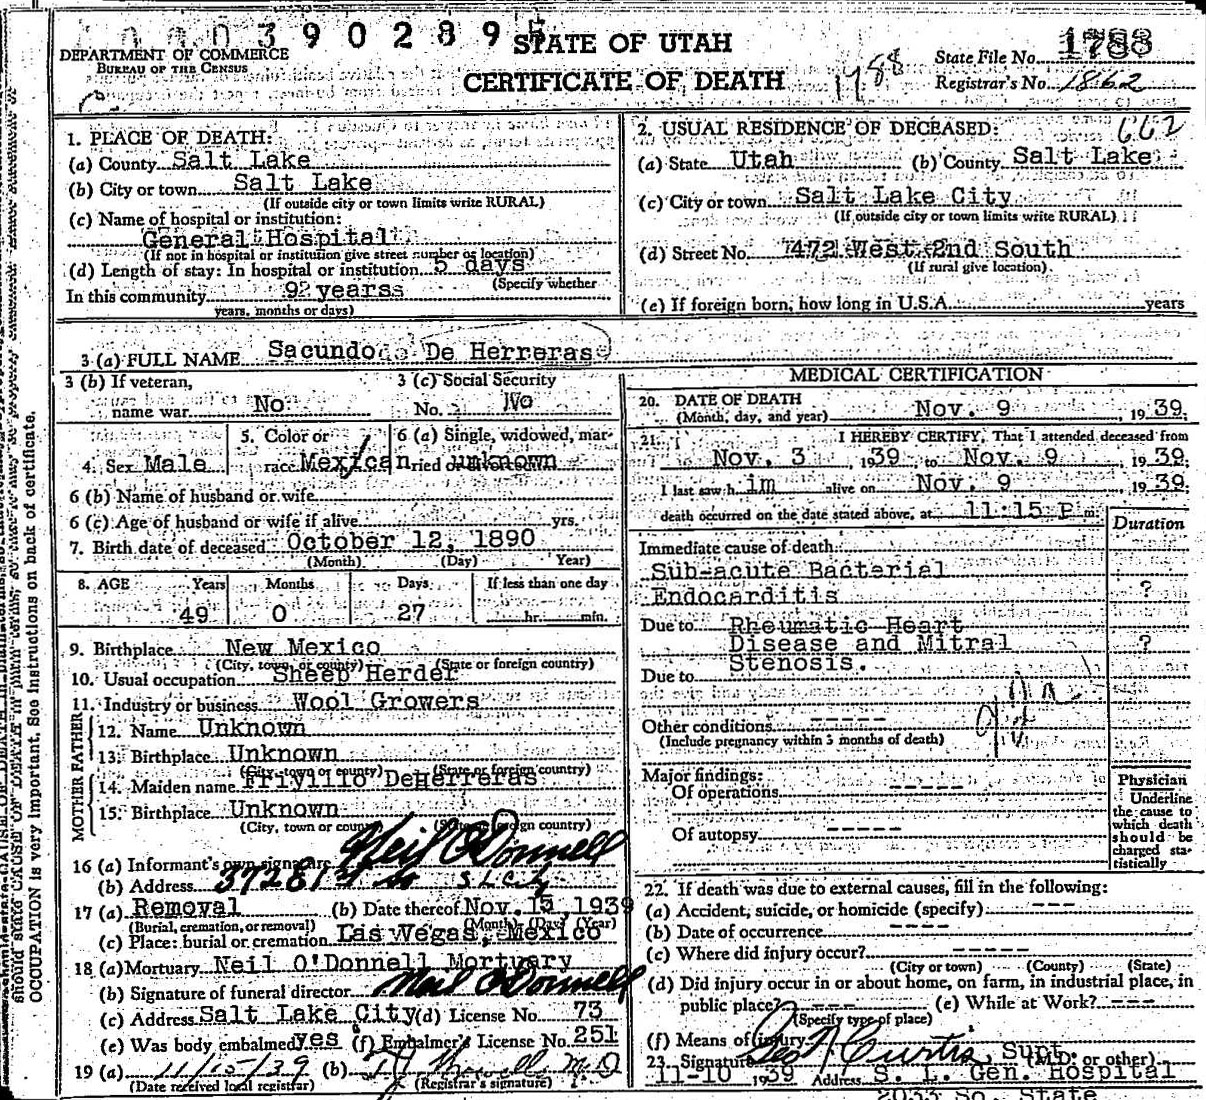 0003902895
STATE OF UTAH
CERTIFICATE OF DEATH
DEPARTMENT OF COMMERCE
BUREAU OF THE CENSUS
1788
State File No. 1788
Registrar's No. 1862
1. PLACE OF DEATH:
(a) County Salt Lake
(b) City or town Salt Lake
(If outside city or town limits write RURAL)
(c) Name of hospital or institution:
General Hospital
(If not in hospital or institution give street number or location)
(d) Length of stay: In hospital or institution 5 days
(Specify whether
In this community 9? years
years, months or days)
2. USUAL RESIDENCE OF DECEASED: 662
(a) State Utah (b) County Salt Lake
(c) City or town Salt Lake City
(If outside city or town limits write RURAL)
(d) Street No. 472 West 2nd South
(If rural give location)
(e) If foreign born, how long in U.S.A. years
3 (a) FULL NAME Sacundo De Herreras
3 (b) If veteran, name war No
3 (c) Social Security No. No
4. Sex Male
5. Color or race Mexican
6 (a) Single, widowed, married or divorced unknown
6 (b) Name of husband or wife
6 (c) Age of husband or wife if alive yrs.
7. Birth date of deceased October 12, 1890
(Month) (Day) Year)
8. AGE Years Months Days If less than one day
49 0 27 hr. min.
9. Birthplace New Mexico
(City, town, or county) (State or foreign country)
10. Usual occupation Sheep Herder
11. Industry or business Wool Growers
FATHER
12. Name Unknown
13. Birthplace Unknown
(City, town or county) (State or foreign country)
MOTHER
14. Maiden name DeHerreras
15. Birthplace Unknown
(City, town or county) (State or foreign country)
16 (a) Informant's own signature Neil O'Donnell
(b) Address 372 E 1st So S L City
17 (a) Removal (b) Date thereof Nov. 13, 1939
(Burial, cremation, or removal) (Month) (Day) (Year)
(c) Place: burial or cremation Las Vegas, Mexico
18 (a) Mortuary Neil O'Donnell Mortuary
(b) Signature of funeral director Neil O'Donnell
(c) Address Salt Lake City (d) License No. 73
(e) Was body embalmed yes (f) Embalmer's License No. 251
19 (a) 11/15/39 (b) M.D.
(Date received local registrar) (Registrar's signature)
MEDICAL CERTIFICATION
20. DATE OF DEATH
(Month, day, and year) Nov. 9, 1939.
21. I HEREBY CERTIFY, That I attended deceased from
Nov. 3, 1939 to Nov. 9 1939.
I last saw him alive on Nov. 9 1939.
death occurred on the date stated above, at 11:15 P m.
Duration
Immediate cause of death:
Sub-acute Bacterial
Endocarditis ?
Due to Rheumatic Heart
Disease and Mitral ?
Stenosis.
Due to
Other conditions -----
(Include pregnancy within 3 months of death)
Major findings:
Of operations -----
Of autopsy -----
Physician
Underline
the cause to
which death
should be
charged sta-
tistically
22. If death was due to external causes, fill in the following:
(a) Accident, suicide, or homicide (specify) ---
(b) Date of occurrence ----
(c) Where did injury occur? -----
(City or town) (County) (State)
(d) Did injury occur in or about home, on farm, in industrial place, in
public place? --- (e) While at Work? ---
(Specify type of place)
(f) Means of injury
23. Signature Geo N Curtis, Supt. (M.D. or other)
11-10 1939 Address S. L. Gen. Hospital
2033 So. State
should state CAUSE OF DEATH in plain terms, so that it may be properly
OCCUPATION is very important. See instructions on back of certificate.